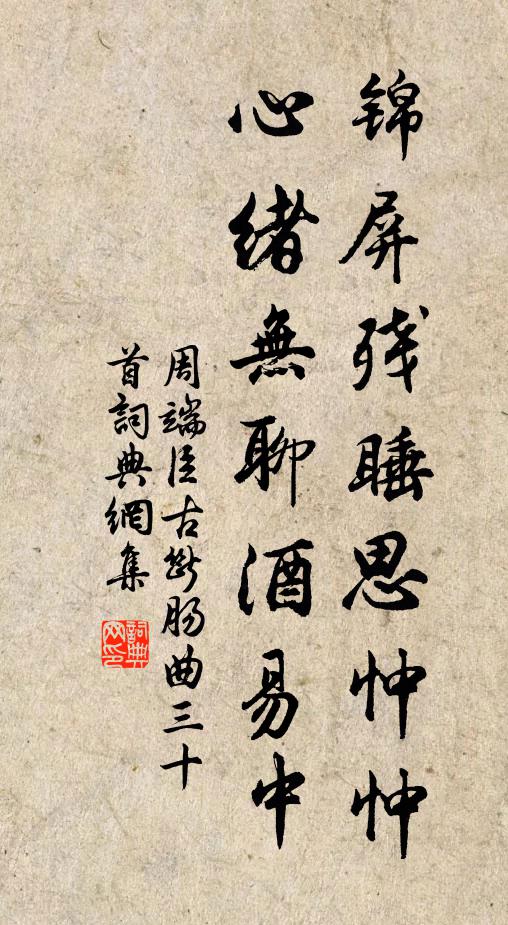 锦屏残睡思忡忡
心绪無聊酒易中
周端臣古断肠曲三十
首詞典網集
詞典網印